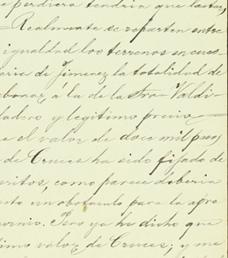 perdiera tendria que
Realmente se reparten entre
igualdad los terrenos en cues
de Jimenez la totalidad de
á la de la Sra. Valdi
y legitimo precio
el valor de doce mil pesos
de Cruces ha sido fijado de
como parece deberia
un obstaculo para la apro
Pero ya he dicho que
timo valor de Cruces; y me